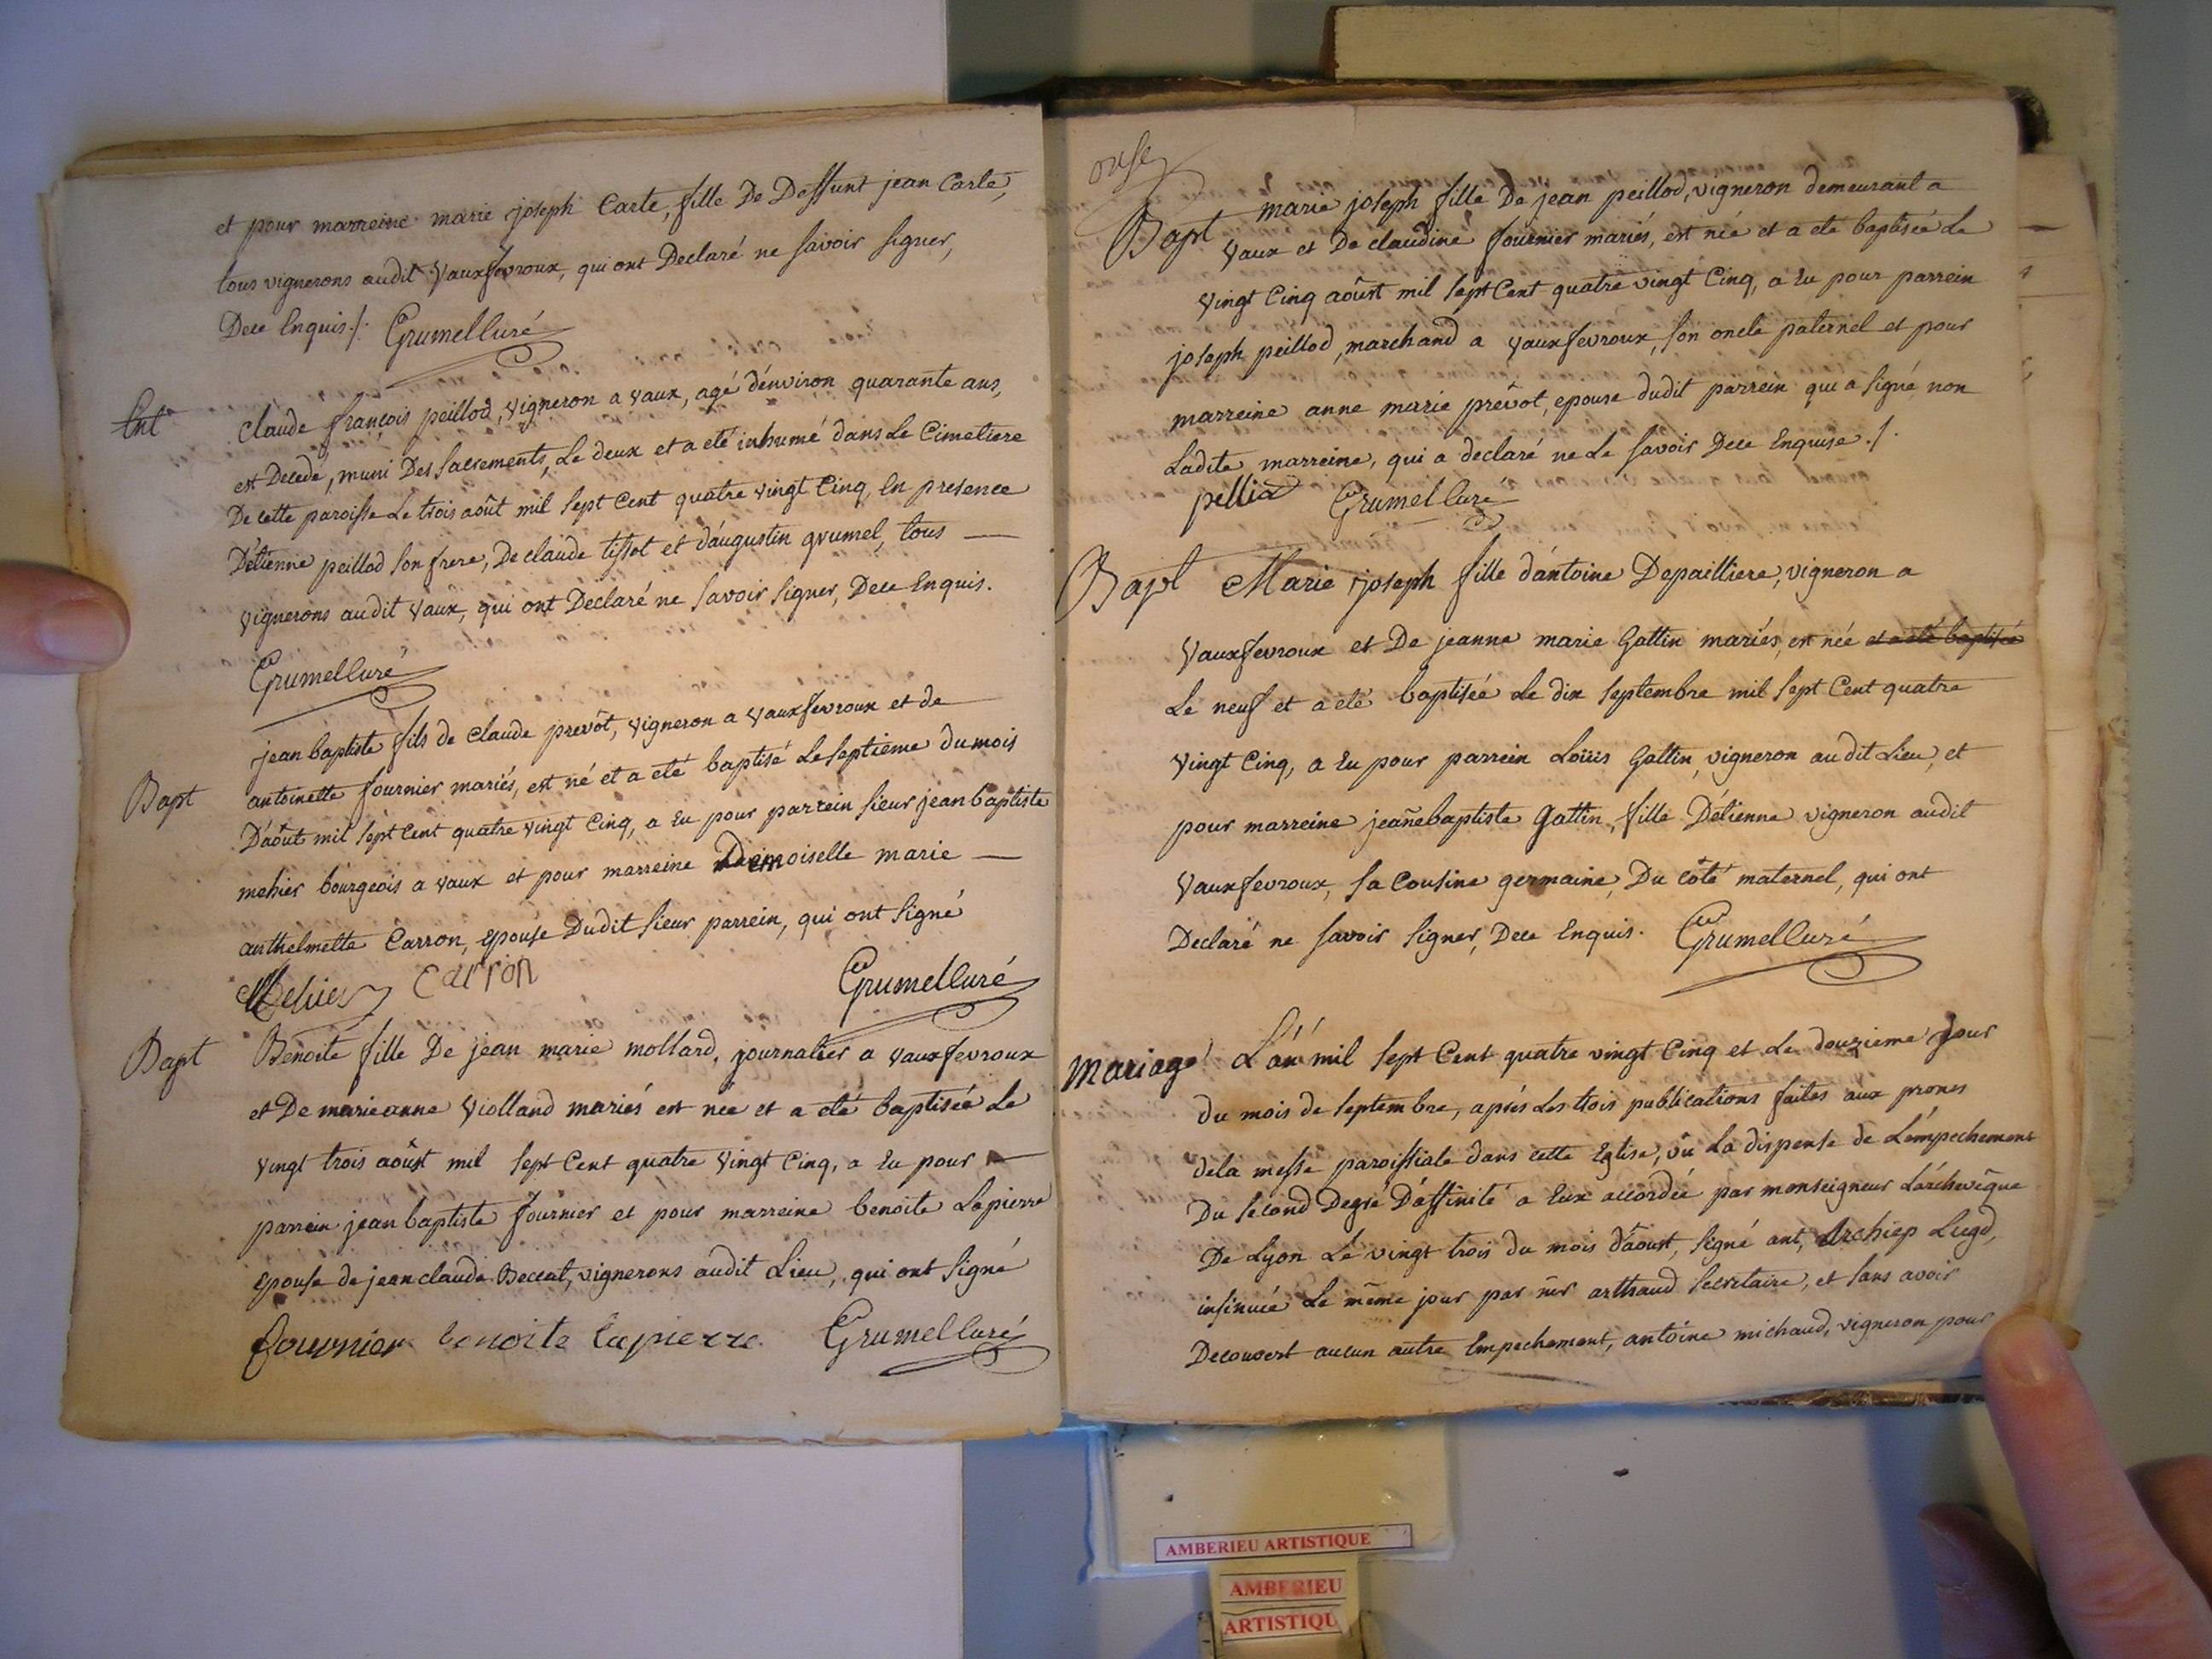 et pour marreine marie joseph Carle, fille De Deffunt jean Carle,
tous vignerons audit Vauxfevroux, qui ont Declaré ne savoir signer,
Dece Enquis ./. Grumel Curé
Ent
claude françois peillod, vigneron a vaux, agé d'environ quarante ans,
est Decedé, muni Des sacrements, Le deux et a eté inhumé dans Le Cimetiere
De cette paroisse Le trois août mil sept Cent quatre vingt Cinq, En presence
D'étienne peillod son frere, De claude tissot et d'augustin grumel, tous
vignerons audit vaux, qui ont Declaré ne savoir signer, Dece Enquis.
Grumel Curé
jean baptiste fils de claude prevôt, vigneron a vauxfevroux et de
Bapt antoinette fournier mariés, est né et a eté baptisé Le septieme du mois
D'août mil sept Cent quatre vingt Cinq, a Eu pour parrein sieur jean baptiste
mehier bourgeois a vaux et pour marreine Demoiselle marie
anthelmette Carron, Epouse Dudit sieur parrein, qui ont signé
Mehier Carron Grumel Curé
Bapt Benoite fille De jean marie mollard, journalier a vauxfevroux
et De marie anne Violland mariés est née et a eté baptisée Le
vingt trois aoûst mil sept Cent quatre vingt Cinq, a Eu pour
parrein jean baptiste fournier et pour marreine benoite Lapierre
Epouse de jean claude Beccat, vignerons audit Lieu, qui ont signé
fournier benoite lapierre Grumel Curé
onse
Bapt marie joseph fille De jean peillod, vigneron demeurant a
Vaux et De claudine fournier mariés, est née et a eté baptisée Le
vingt Cinq aoûst mil sept Cent quatre vingt Cinq, a Eu pour parrein
joseph peillod, marchand a vauxfevroux, son oncle paternel et pour
marreine anne marie prevôt, epouse dudit parrein qui a signé non
Ladite marreine, qui a declaré ne Le savoir Dece Enquise ./.
pelliod Grumel Curé
Bapt Marie joseph fille d'antoine Depailliere, vigneron a
Vauxfevroux et De jeanne marie Gattin mariés, est née et a eté baptisée
Le neuf et a eté baptisée Le dix septembre mil sept Cent quatre
vingt Cinq, a Eu pour parrein Loüis Gattin, vigneron audit Lieu, et
pour marreine jeañebaptiste Gattin, fille D'étienne vigneron audit
Vauxfevroux, sa Cousine germaine, Du côté maternel, qui ont
Declaré ne savoir signer, Dece Enquis. Grumel Curé
Mariage L'an mil sept Cent quatre vingt Cinq et Le douzieme jour
du mois de septembre, aprés Les trois publications faites aux prones
dela messe paroissiale dans cette Eglise, vû La dispense de L'empechement
Du second Degré D'affinité a Eux accordée par monseigneur L'archevêque
De Lyon Le vingt trois du mois d'aoust, signé ant, Archiep Lugd,
insinuée Le même jour par mr arthaud secretaire, et sans avoir
Decouvert aucun autre Empechement, antoine michaud, vigneron pour
AMBERIEU ARTISTIQUE
AMBERIEU
ARTISTIQU